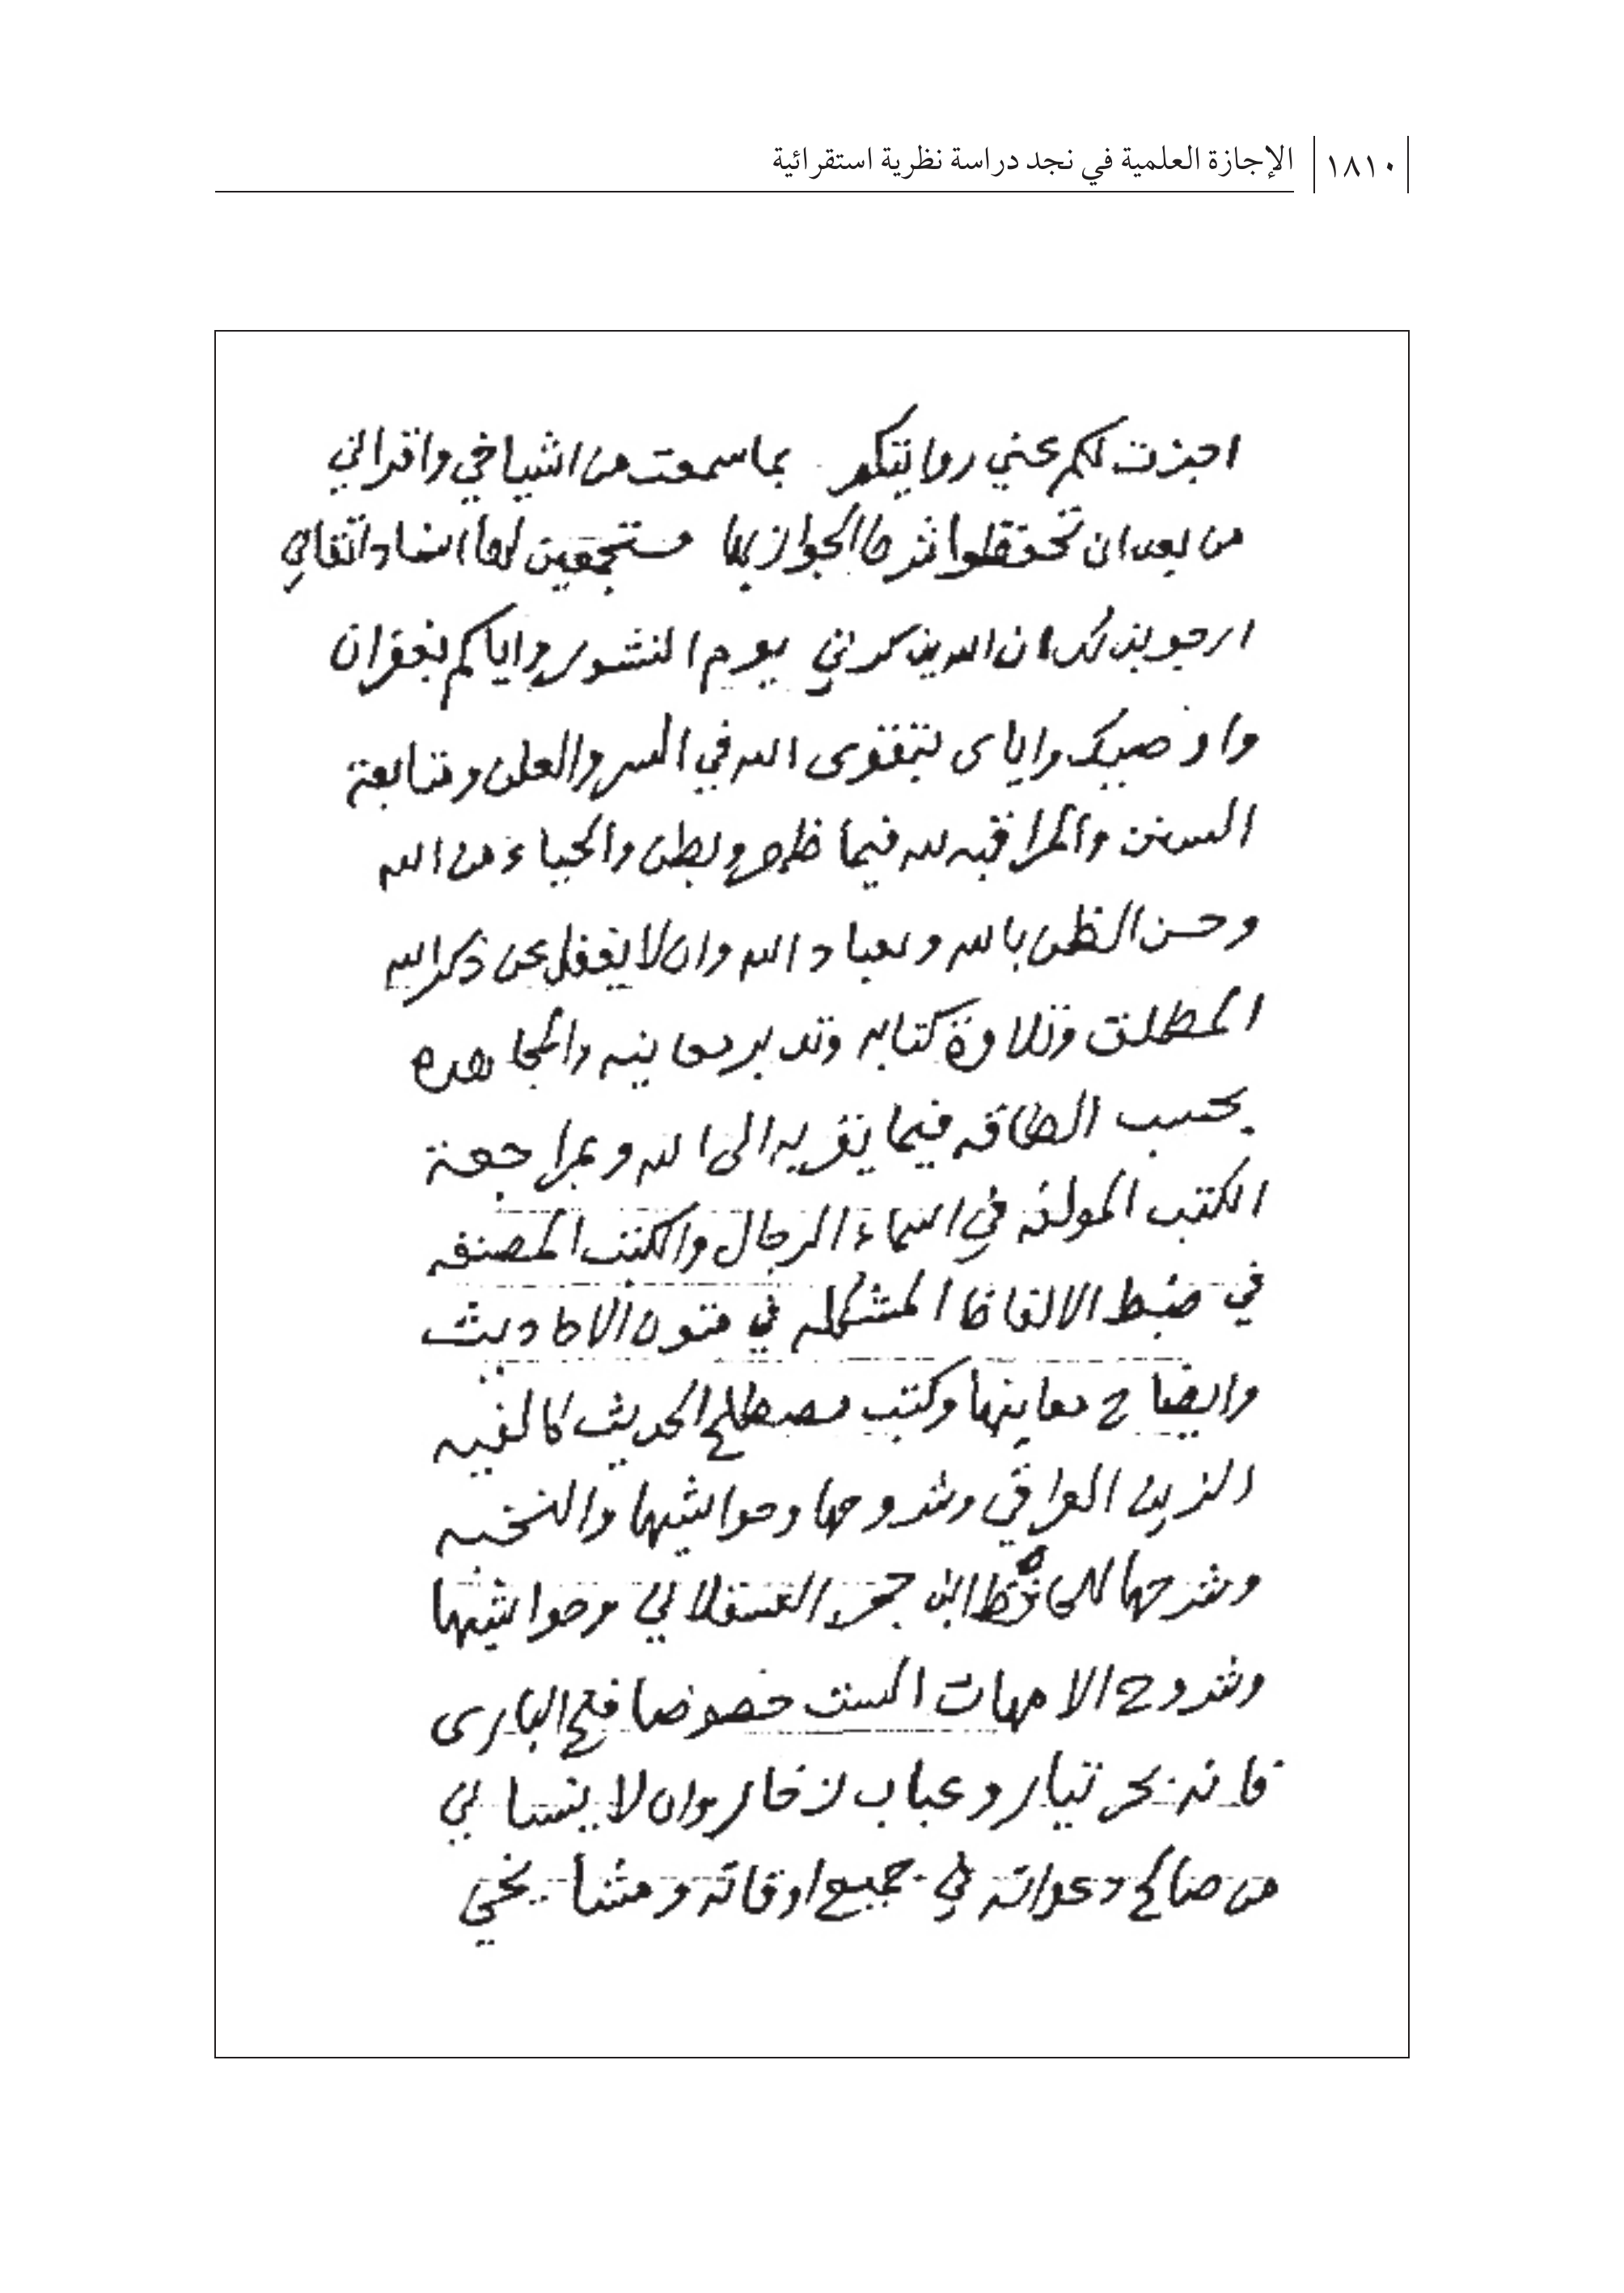 ١٨١٠ الإجازة العلمية في نجد دراسة نظرية استقرائية
اجزت لكم عني روايتكم بما سمعت من اشياخي واقراني
من بعد ان تحفظوا شرط الجواز بها مستجمعين لها اسناد اتقاني
ارجو بذلك ان الله يذكرني يوم النشور واياكم بغفران
واوصيك واياى بتقوى الله في السر والعلن ومتابعة
السنن والمراقبه لله فيما ظهر وبطن والحياء من الله
وحسن الظن بالله وبعباد الله وان لا يغفل عن ذكر الله
المطلق وتلاوة كتابه وتدبر معانيه والمجاهده
بحسب الطاقه فيما يقربه الى الله وبمراجعة
الكتب المولفه في اسماء الرجال والكتب المصنفه
في ضبط الالفاظ المشكله في متون الاحاديث
وايضاح معانيها وكتب مصطلح الحديث كالفيه
الزين العراقي وشروحها وحواشيها والنخبه
وشرحها للحافظ ابن حجر العسقلاني وحواشيها
وشروح الامهات الست خصوصا فتح البارى
فانه بحر تيار وعباب زخار وان لا ينساني
من صالح دعواته في جميع اوقاته ومشايخي